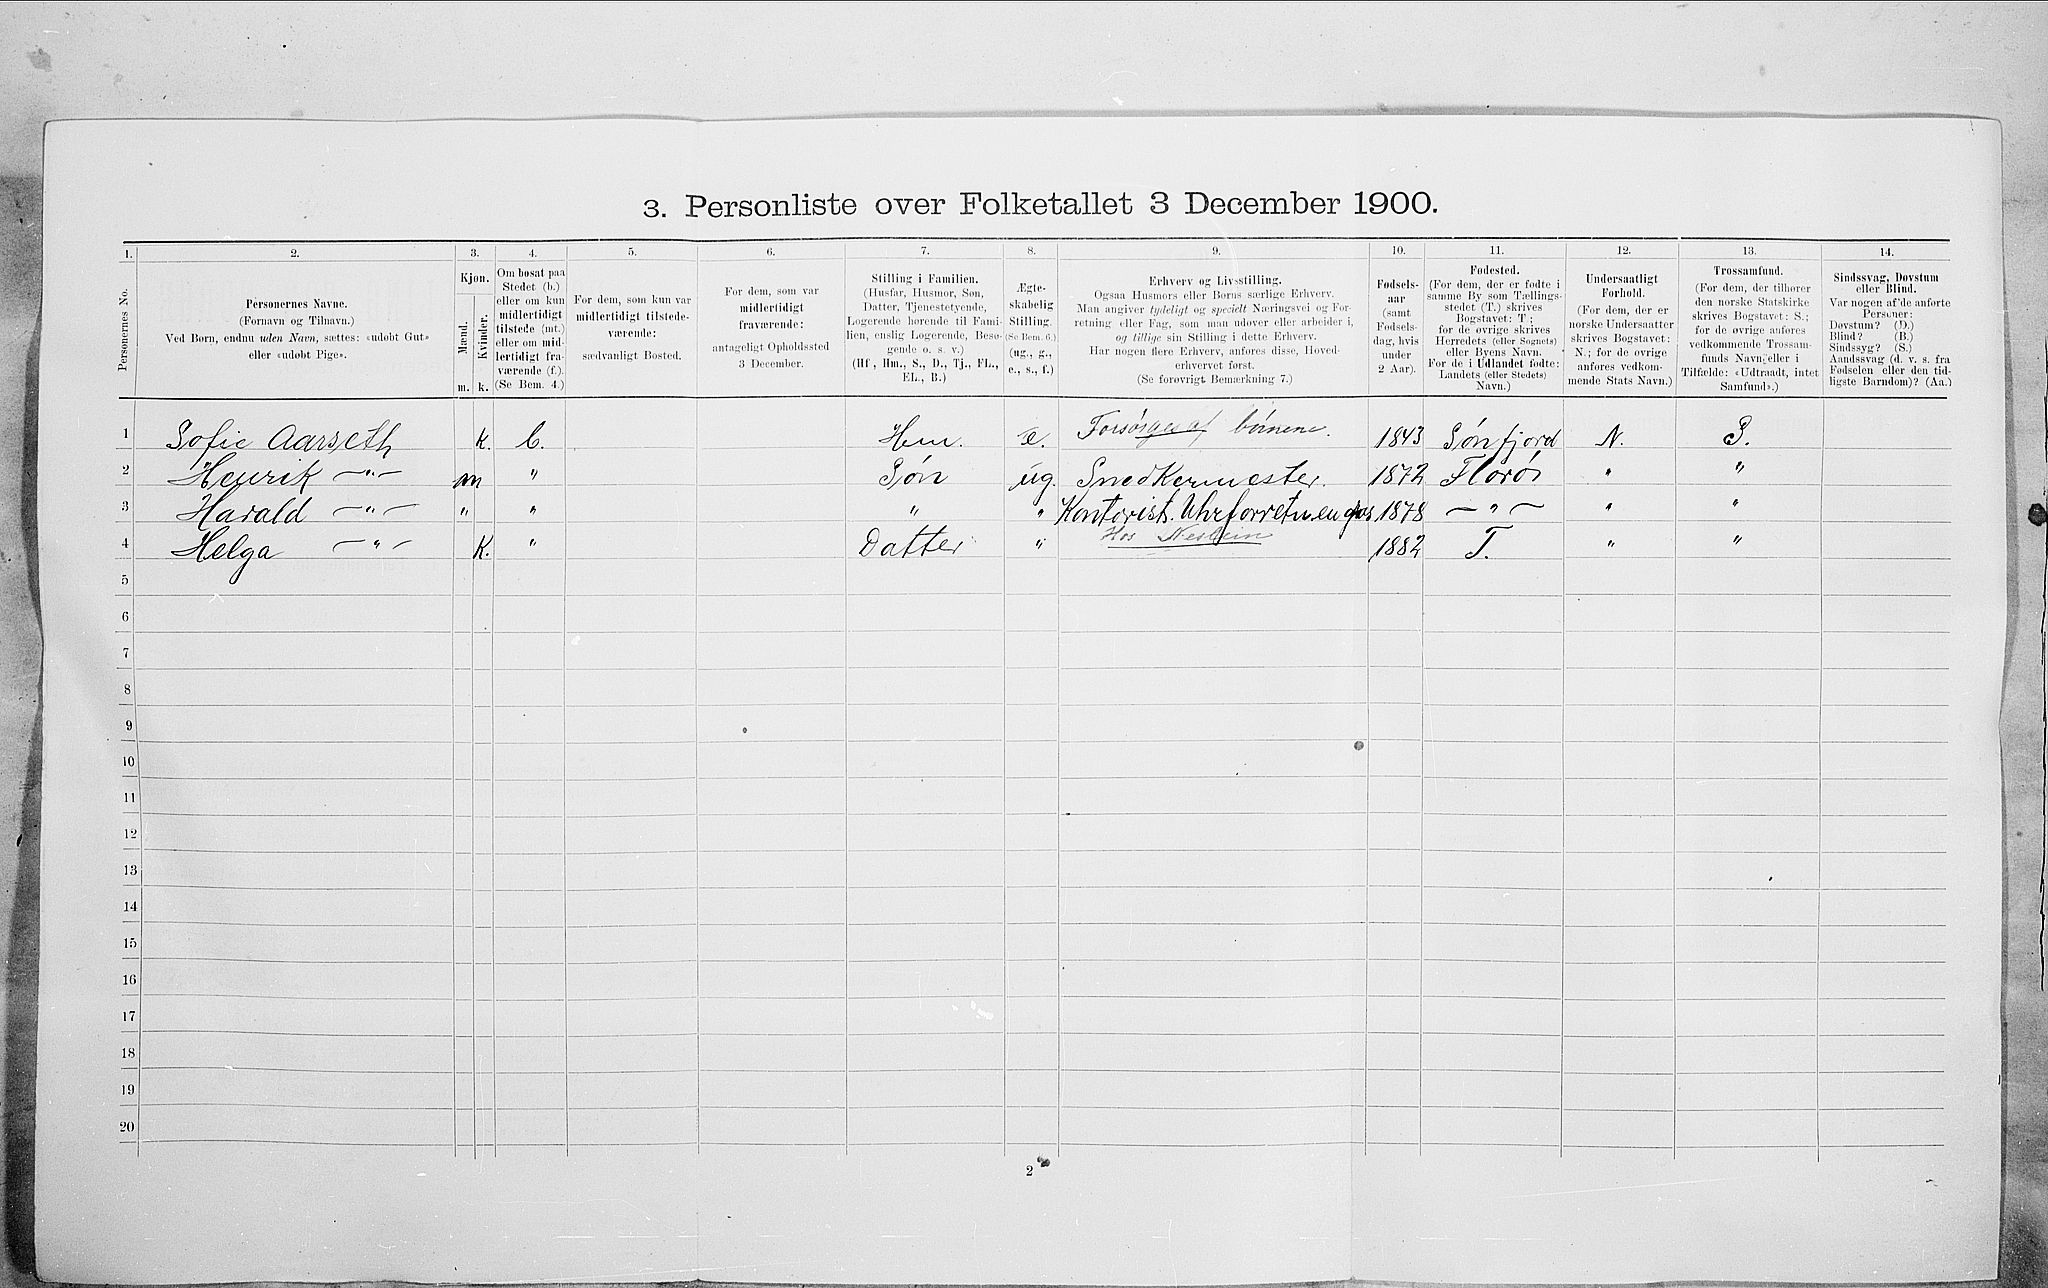 3. Personliste over Folketallet 3 December 1900.
1. 2. 3. 4. 5. 6. 7. 8. 9. 10. 11. 12. 13. 14.
Personernes No.
Personernes Navne.
(Fornavn og Tilnavn.)
Ved Børn, endnu uden Navn, sættes: «udøbt Gut»
eller «udøbt Pige».
Kjøn.
Mænd.
Kvinder.
m. k.
Om bosat paa
Stedet (b.)
eller om kun
midlertidigt
tilstede (mt.)
eller om mid-
lertidigt fra-
værende (f.).
(Se Bem. 4.)
For dem, som kun var
midlertidigt tilstede-
værende:
sædvanligt Bosted.
For dem, som var
midlertidigt
fraværende:
antageligt Opholdssted
3 December.
Stilling i Familien.
(Husfar, Husmor, Søn,
Datter, Tjenestetyende,
Logerende hørende til Fami-
lien, enslig Logerende, Besø-
gende o. s. v.)
(Hf, Hm., S., D., Tj., FL.,
EL., B.)
Ægte-
skabelig
Stilling.
(Se Bem. 6.)
(ug., g.,
e., s., f.)
Erhverv og Livsstilling.
Ogsaa Husmors eller Børns særlige Erhverv.
Man angiver tydeligt og specielt Næringsvei og For-
retning eller Fag, som man udøver eller arbeider i,
og tillige sin Stilling i dette Erhverv.
Har nogen flere Erhverv, anføres disse, Hoved-
erhvervet først.
(Se forøvrigt Bemærkning 7.)
Fødsels-
aar
(samt
Fødsels-
dag, hvis
under
2 Aar).
Fødested.
(For dem, der er fødte i
samme By som Tællings-
stedet (T.) skrives
Bogstavet: T;
for de øvrige skrives
Herredets (eller Sognets)
eller Byens Navn.
For de i Udlandet fødte:
Landets (eller Stedets)
Navn.)
Undersaatligt
Forhold.
(For dem, der er
norske Undersaatter
skrives Bogstavet:
N.; for de øvrige
anføres vedkom-
mende Stats Navn.)
Trossamfund.
(For dem, der tilhører
den norske Statskirke
skrives Bogstavet: S.;
for de øvrige anføres
vedkommende Trossam-
funds Navn, eller i
Tilfælde: «Udtraadt, intet
Samfund».)
Sindssvag, Døvstum
eller Blind.
Var nogen af de anførte
Personer:
Døvstum? (D.)
Blind? (B.)
Sindssyg? (S.)
Aandssvag (d. v. s. fra
Fødselen eller den tid-
ligste Barndom)? (Aa.)
1 Sofie Aarseth k. b. Hm. e. Forsørges af børnene. 1843 Sønfjord N. S.
2 Henrik —"— m " Søn ug. Snedkermester. 1872 Florø " "
3 Harald —"— " " " " Kontorist. Uhrforretn. 1878 —"— " "
4 Helga —"— K. " Datter " Hos 1882 T. " "
5
6
7
8
9
10
11
12
13
14
15
16
17
18
19
20
2